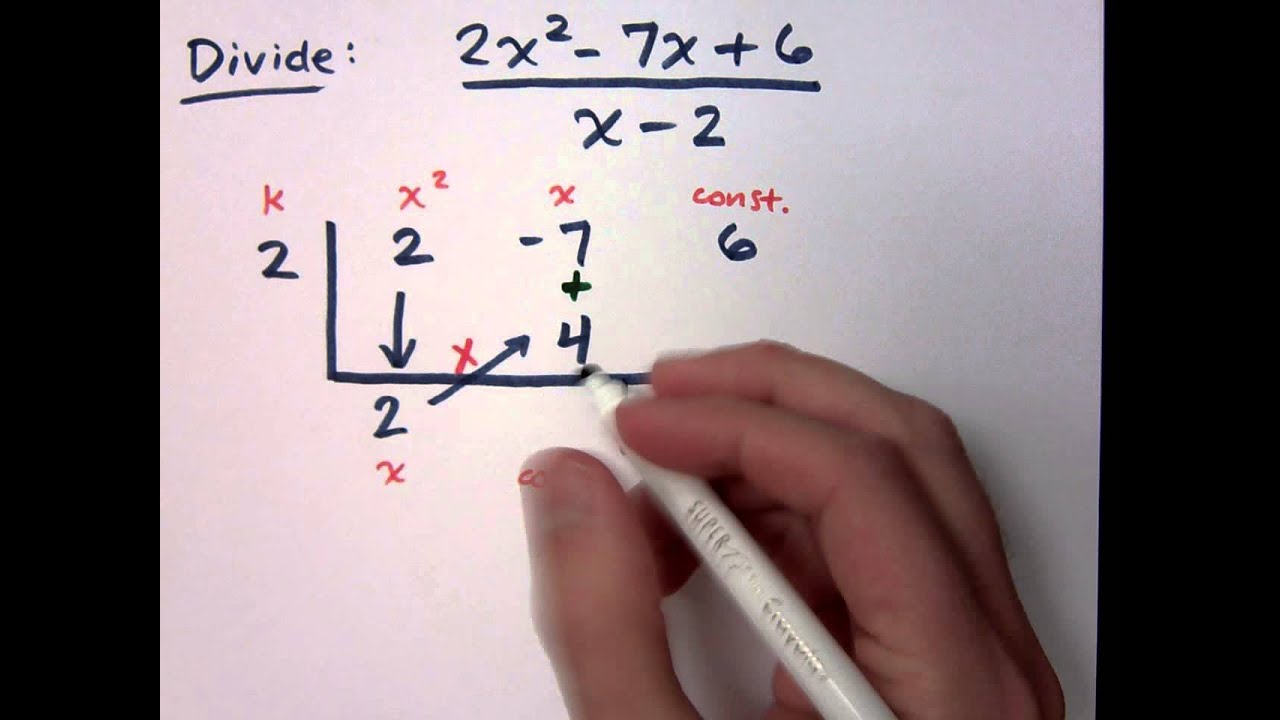 Divide: 2x² - 7x + 6
x - 2
k x² x const.
2 2 -7 6
+
x 4
2
x
SUPER